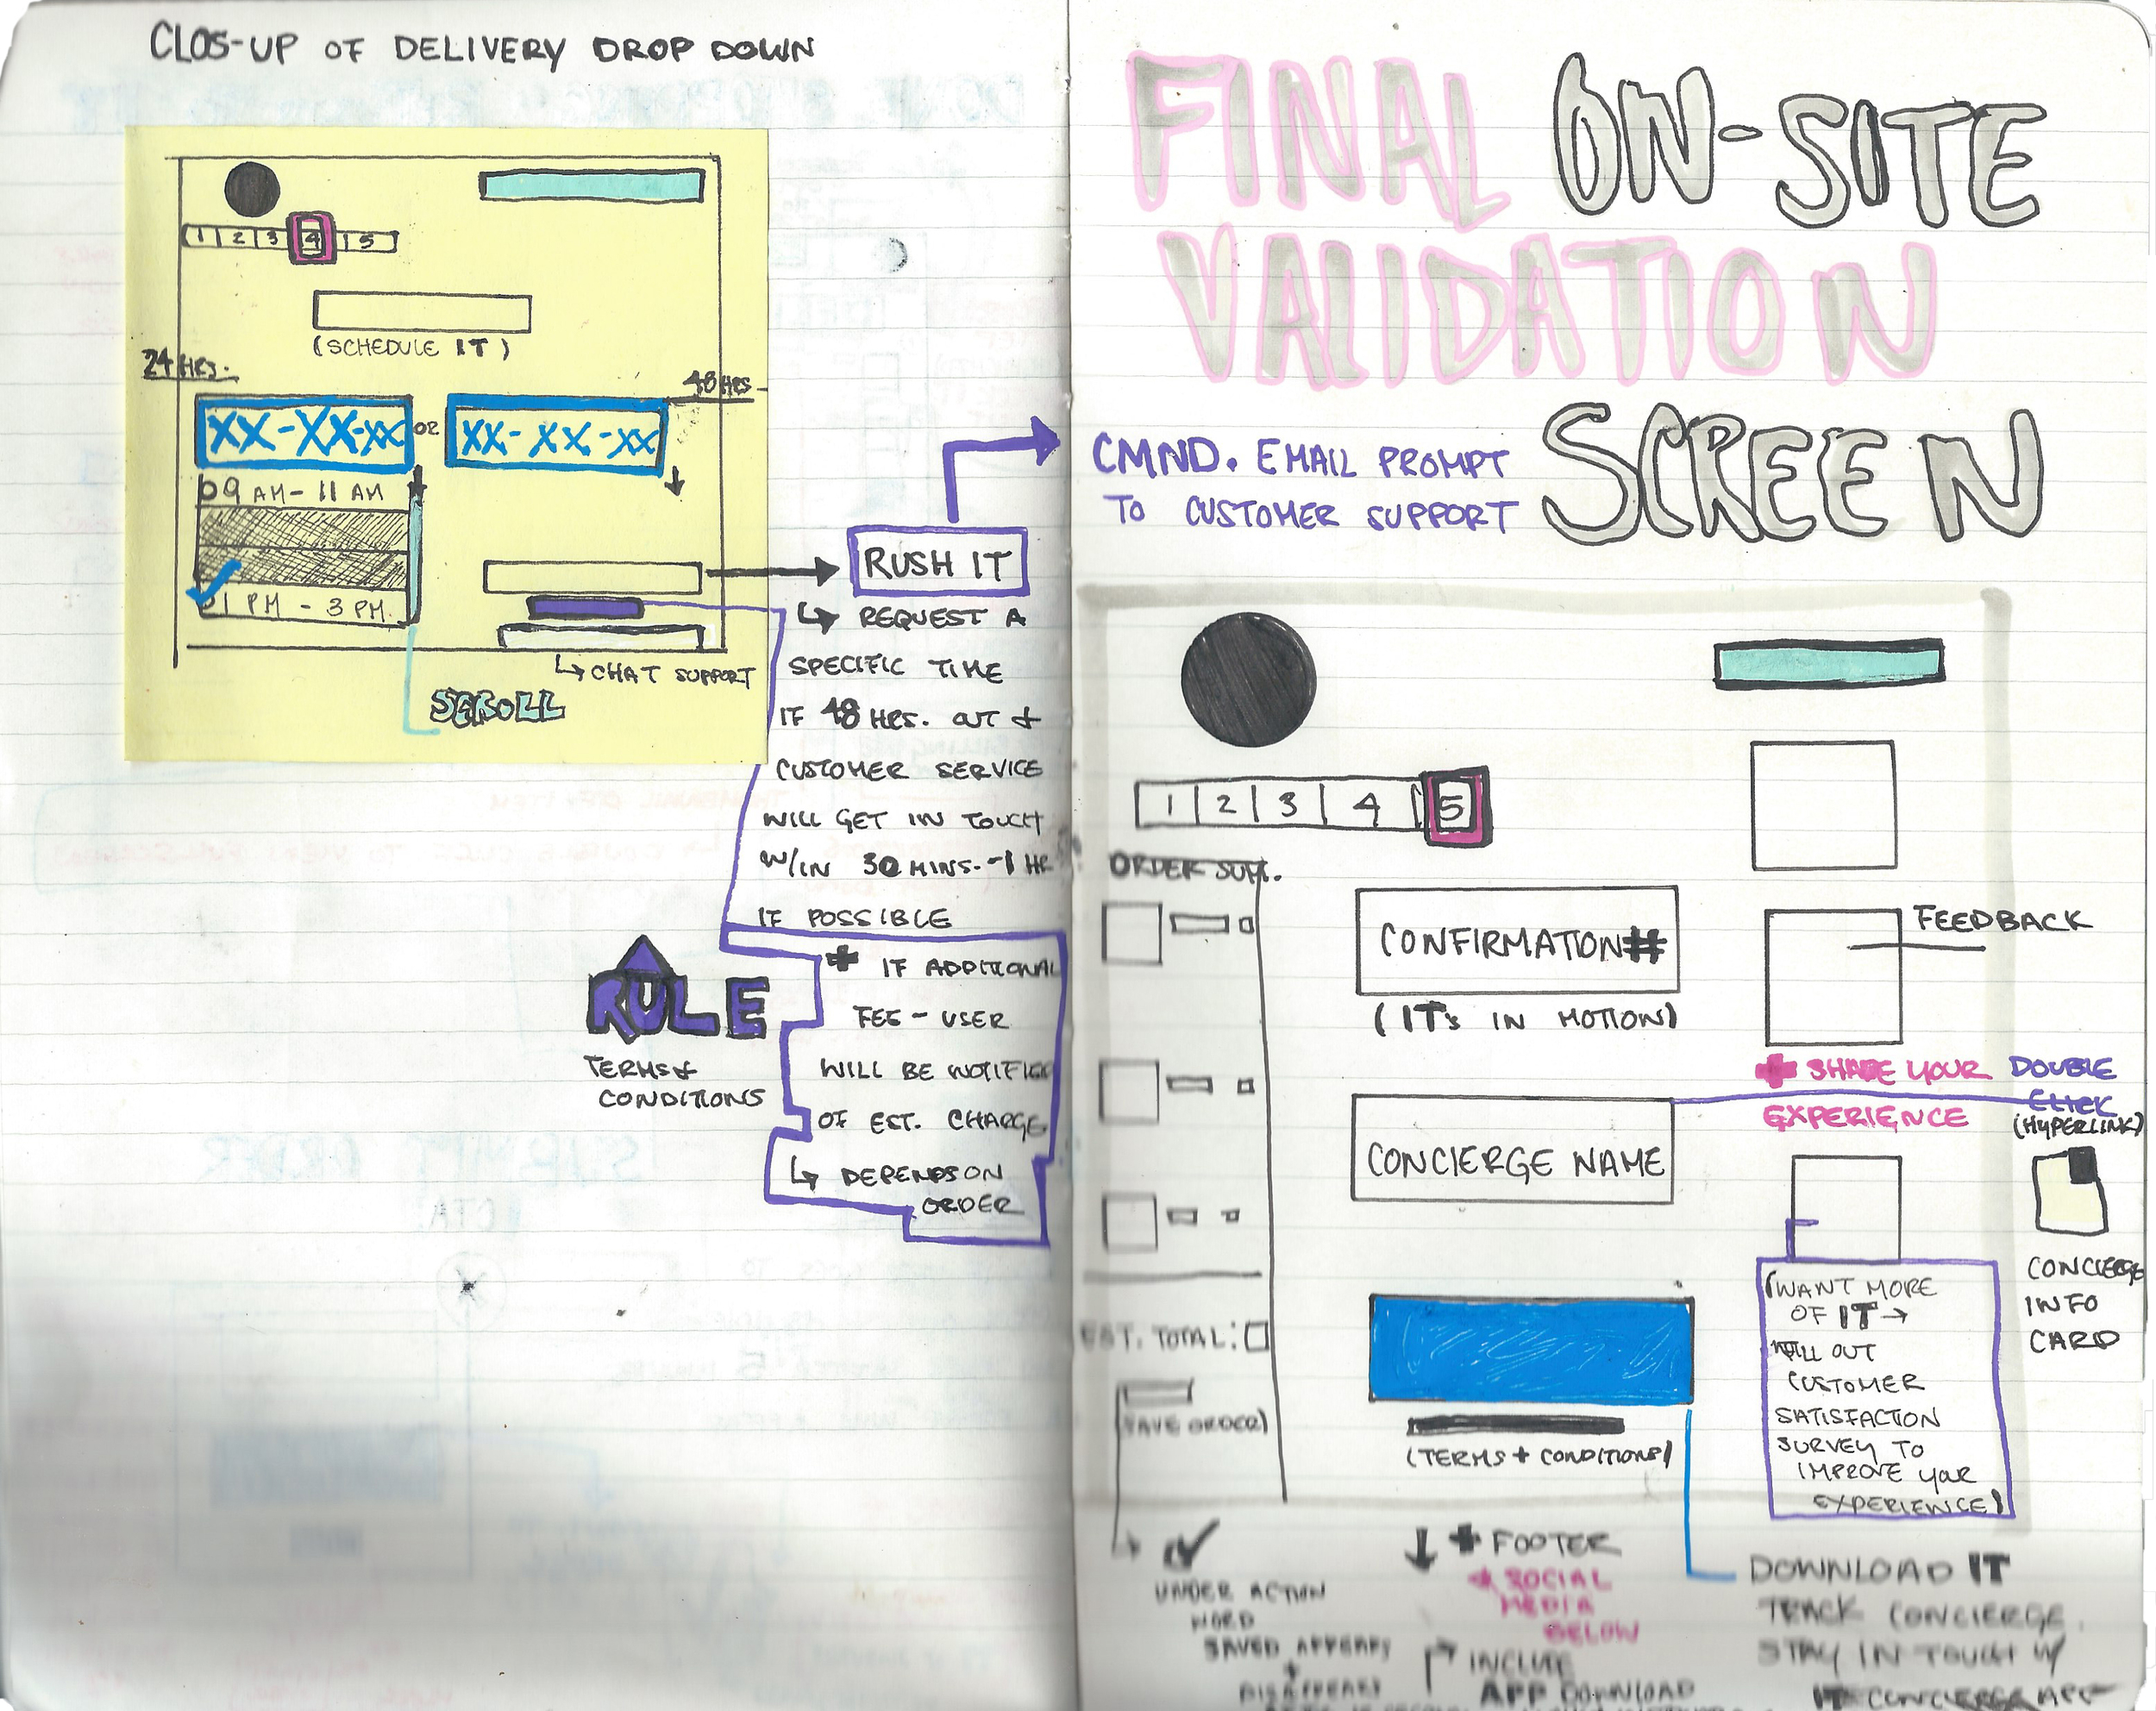 CLOS-UP OF DELIVERY DROP DOWN
1 2 3 4 5
(SCHEDULE IT)
24 HRS.
48 HRS
XX-XX-XX OR XX-XX-XX
09 AM - 11 AM
01 PM - 3 PM.
↳ CHAT SUPPORT
SCROLL
RUSH IT
↳ REQUEST A
SPECIFIC TIME
IF 48 HRS. OUT &
CUSTOMER SERVICE
WILL GET IN TOUCH
W/IN 30 MINS.-1 HR
IF POSSIBLE
+ IF ADDITIONAL
FEE - USER
WILL BE NOTIFIED
OF EST. CHARGE
↳ DEPENDS ON
ORDER
RULE
TERMS &
CONDITIONS
FINAL ON-SITE
VALIDATION
SCREEN
CMND. EMAIL PROMPT
TO CUSTOMER SUPPORT
1 2 3 4 5
ORDER SUM.
EST. TOTAL:
(SAVE ORDER)
CONFIRMATION#
(IT's IN MOTION)
CONCIERGE NAME
(TERMS + CONDITIONS)
FEEDBACK
+ SHARE YOUR
EXPERIENCE
DOUBLE
CLICK
(HYPERLINK)
CONCIERGE
INFO
CARD
(WANT MORE
OF IT →
FILL OUT
CUSTOMER
SATISFACTION
SURVEY TO
IMPROVE YOUR
EXPERIENCE)
UNDER ACTION
WORD
SAVED APPEARS
+
DISAPPEARS
↓ + FOOTER
SOCIAL
MEDIA
BELOW
INCLUDE
APP DOWNLOAD
DOWNLOAD IT
TRACK CONCIERGE.
STAY IN TOUCH W/
IT CONCIERGE APP